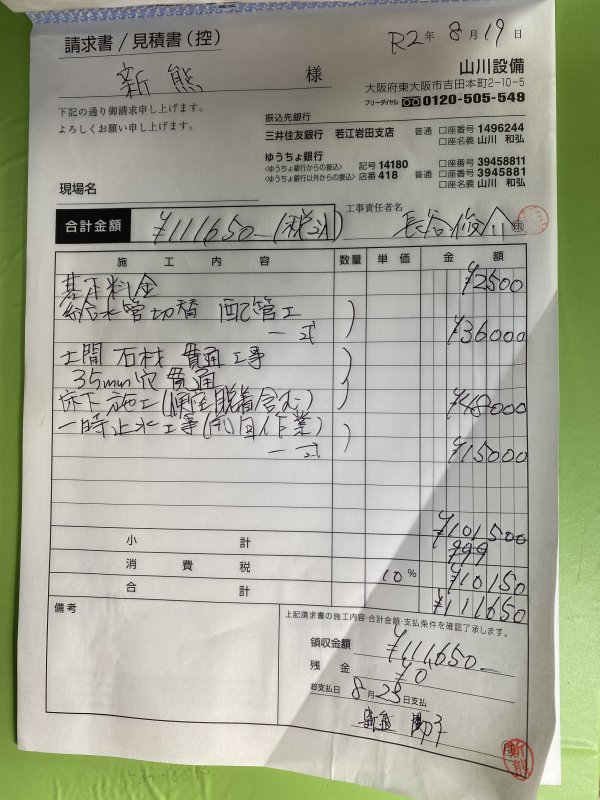 請求書/見積書(控)
R2年 8月19日
新熊 様
山川設備
大阪府東大阪市吉田本町2-10-5
フリーダイヤル 0120-505-549
下記の通り御請求申し上げます。
よろしくお願い申し上げます。
振込先銀行
三井住友銀行 若江岩田支店 普通 口座番号 1496244
口座名義 山川 和弘
ゆうちょ銀行
<ゆうちょ銀行からの振込> 記号 14180 口座番号 39458811
<ゆうちょ銀行以外からの振込> 店番 418 普通 口座番号 3945881
口座名義 山川 和弘
現場名
工事責任者名
合計金額 ¥111650-(税込)
施工内容 数量 単価 金額
基本料金 ¥2500
給水管切替 配管工
一式 ¥36000
土間 石材 貫通工事
35mm穴 貫通
床下施工(便座脱着含む) ¥48000
一時止水工事(前日作業)
一式 ¥15000
小計 ¥101500
消費税 10% ¥10150
合計 ¥111650
備考
上記請求書の施工内容・合計金額・支払条件を確認了承します。
領収金額 ¥111,650-
残金 ¥0
お支払日 8月25日支払
新熊